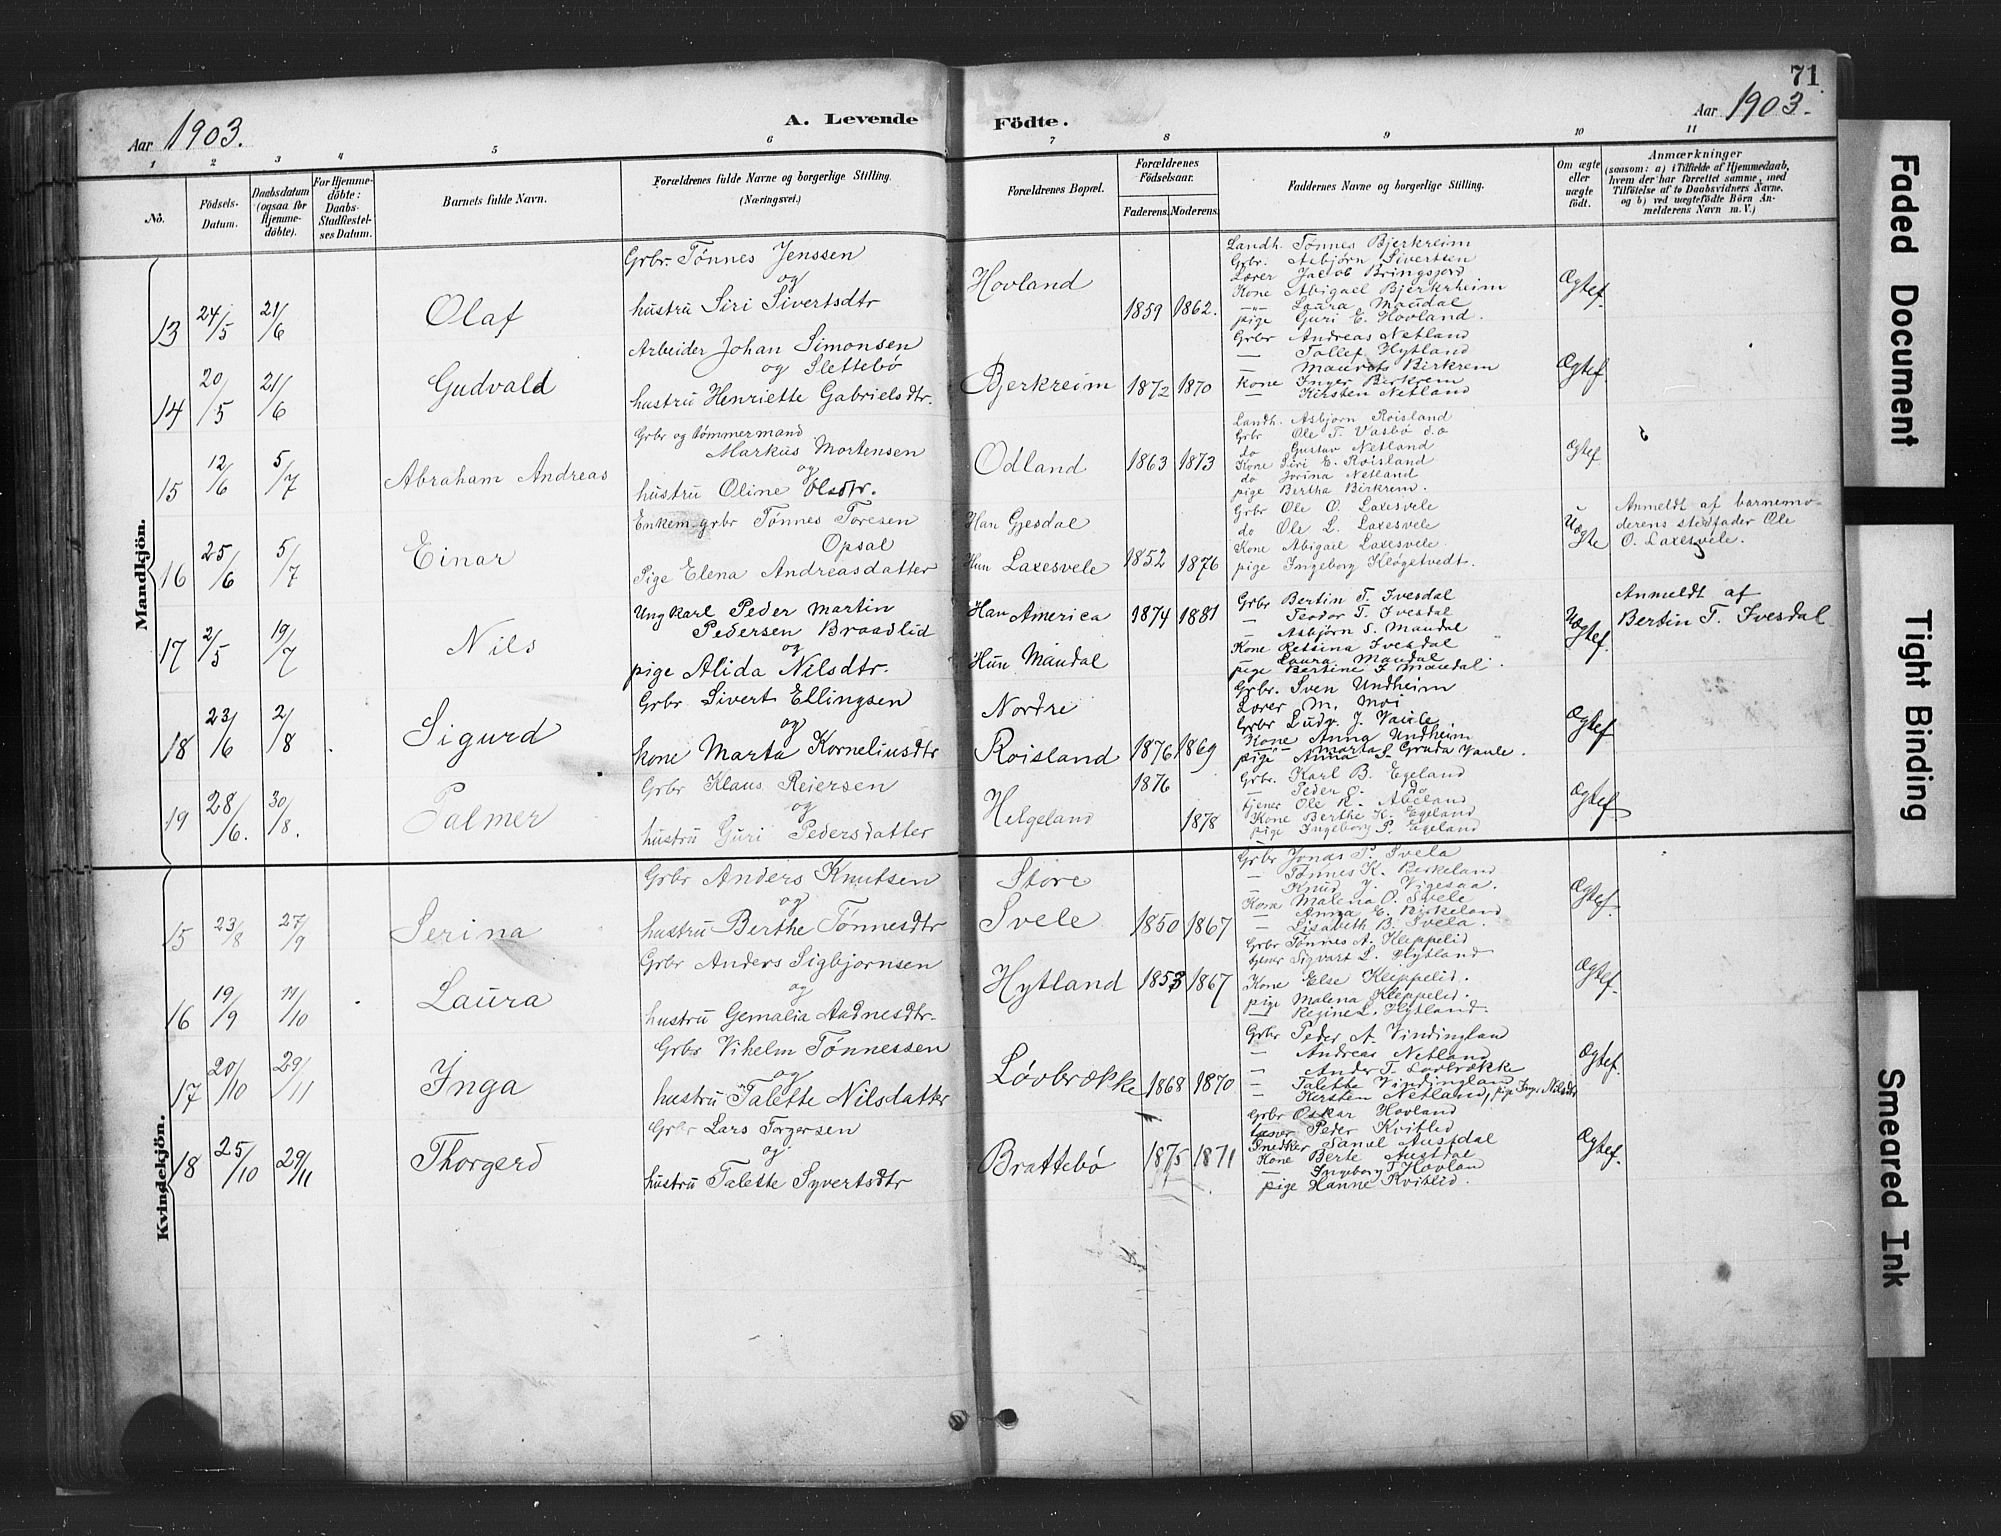 71
Aar 1903. A. Levende Födte. Aar 1903.
1 2 3 4 5 6 7 8 9 10 11
No.
Födsels-Datum.
Daabsdatum (ogsaa for Hjemme-döbte).
For Hjemme-döbte: Daabs-Stadfæstel-ses Datum.
Barnets fulde Navn.
Forældrenes fulde Navne og borgerlige Stilling.
(Næringsvei.)
Forældrenes Bopæl.
Forældrenes Födselsaar.
Faderens. Moderens.
Faddernes Navne og borgerlige Stilling.
Om ægte eller uægte födt.
Anmærkninger
(saasom: a) i Tilfælde af Hjemmedaab,
hvem der har forrettet samme, med
Tilföielse af to Daabsvidners Navne.
og b) ved uægtefödte Börn An-
melderens Navn m. V.)
Mandkjön.
13 24/5 21/6 Olaf
Grbr. Tønnes Jenssen
og
hustru Siri Sivertsdtr
Hovland 1859 1862.
Landh. Tønnes Bjerkreim
Grbr. Asbjørn Sivertsen
Lærer Jacob Bringsjord
Kone Abigael Bjerkrheim
—"— Laura Maudal
pige Guri E. Hovland.
Ægtef.
14 20/5 21/6 Gudvald
Arbeider Johan Simonsen
og Slettebø
hustru Henriette Gabrielsdtr.
Bjerkreim 1872 1870
Grbr Andreas Netland
— Tollef Hytland
— Maurits Birkrem
kone Inger Birkrem
— Kirsten Netland
Ægtef.
15 12/6 5/7 Abraham Andreas
Grbr og tømmermand
Markus Mortensen
og
hustru Oline Olsdtr.
Odland 1863 1873
Landh. Asbjørn Roisland
Grbr Ole T. Vasbø d.o
do Gustav Netland
Kone Siri E. Roisland
do Jorina Netland
pige Bertha Birkrem.
Ægtef
16 25/6 5/7 Einar
Enkem. grbr Tønnes Toresen
Opsal
Pige Elena Andreasdatter
Han Gjesdal
Hun Laxesvele 1852 1876
Grbr Ole O. Laxesvele
do Ole L. Laxesvele
Kone Abigael Laxesvele.
pige Ingeborg Kløgetvedt.
Uægte
Anmeldt af barnemo-
derens stedfader Ole
O. Laxesvele.
17 2/5 19/7 Nils
Ungkarl Peder Martin
Pedersen Braadlid
og
pige Alida Nilsdtr.
Han America 1874 1881
Hun Maudal
Grbr Bertin T. Ivesdal
— Teodor T. Ivesdal
— Asbjørn S. Maudal
Kone Ressina Ivesdal
— Laura Maudal
pige Bertine J Maudal.
Uægtef.
Anmeldt af
Bertin T. Ivesdal
18 23/6 2/8 Sigurd
Grbr Sivert Ellingsen
og
kone Marta Korneliusdtr
Nordre
Roisland 1876 1869
Grbr. Sven Undheim
Lærer M. Moi
Grbr Ludv. J. Vaule
Kone Anna Undheim
— Marta S. Gruda
pige Anna Vaule.
Ægtef
19 28/6. 30/8. Palmer
Grbr Klaus Reiersen
og
hustru Guri Pedersdatter
Helgeland 1876 1878
Grbr. Karl B. Egeland
— Peder O. do
tjener Ole R. Abeland
Kone Berthe K. Egeland
pige Ingeborg P. Egeland
Ægtef
Kvindekjön.
15 23/8 27/9 Serina
Grbr Anders Knutsen
og
hustru Berthe Tønnesdtr
Store
Svele 1850 1867
Grbr Jonas P. Svela
— Tønnes K. Birkeland
— Knud J. Vigesaa.
Kone Malena O. Svele
— Anna E. Birkeland
— Lisabeth B. Svela.
Ægtef.
16 19/9 11/10 Laura
Grbr Anders Sigbjørnsen
og
hustru Gemalia Aadnesdtr.
Hytland 1853 1867
Grbr Tønnes A. Kleppelid
tjener Sigvart L. Hytland
Kone Else Kleppelid.
pige Malena Kleppelid.
— Regine L. Hytland.
Ægtef.
17 20/10 29/11 Inga
Grbr Vihelm Tønnessen
og
hustru Talette Nilsdatter
Løvbrække 1868 1870
Grbr Peder A. Vindingland
— Andreas Netland
— Ander T. Lovbrække
— Talette Vindingland
— Kirsten Netland, pige Inge Nilsdtr
Ægtef.
18 25/10 29/11 Thorgerd
Grbr Lars Torgersen
og
hustru Talette Syvertsdtr
Brattebø 1875 1871
Grbr Oskar Hovland
tjener Peder Kvitlid
Snedker Samel Austdal
Kone Berte Austdal
— Ingeborg T Hovlan
pige Hanne Kvitlid.
Ægtef.
Faded Document
Tight Binding
Smeared Ink